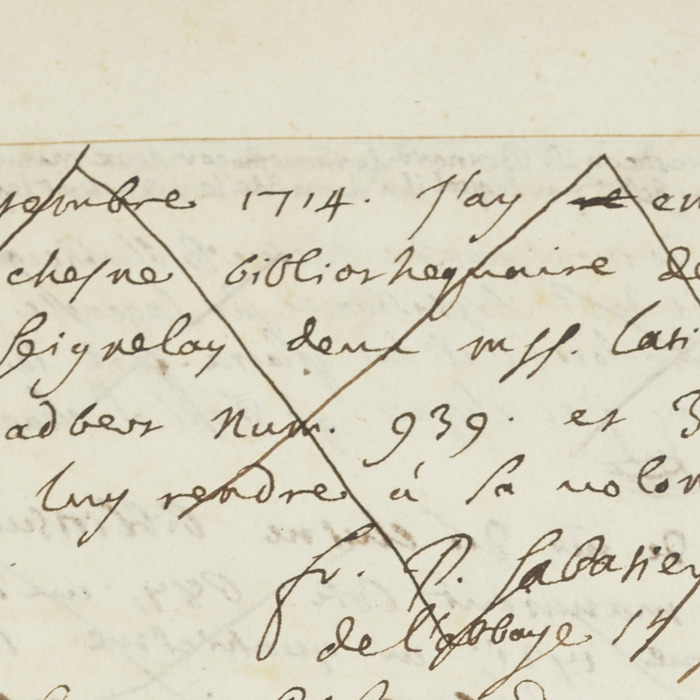 septembre 1714. J'ay re en
chesne bibliothequaire de
Seignelay deux mss. lati
adbert Num. 939. et 3
luy rendre à sa volon
fr. P. Sabatier
de l'abbaye